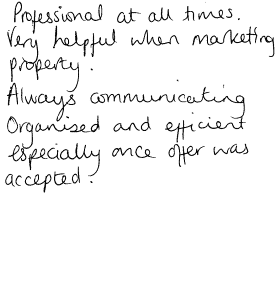 Professional at all times.
Very helpful when marketing
property.
Always communicating
Organised and efficient
especially once offer was
accepted.